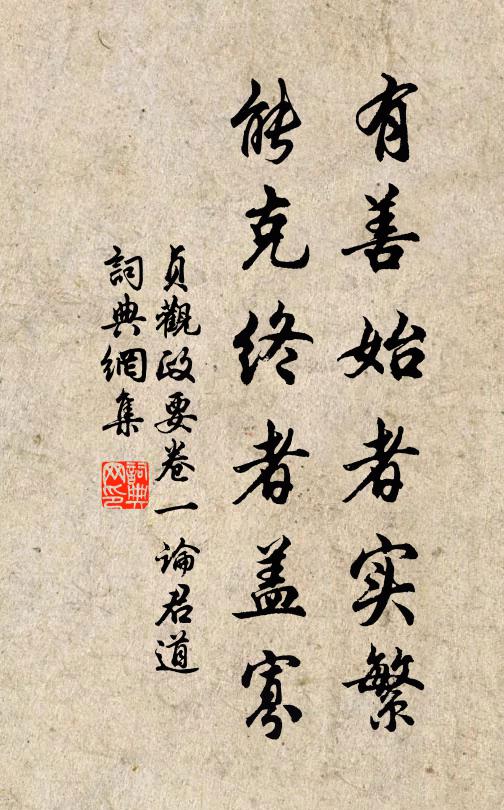 有善始者实繁
能克终者盖寡
貞觀政要卷一論君道
詞典網集
詞典網印